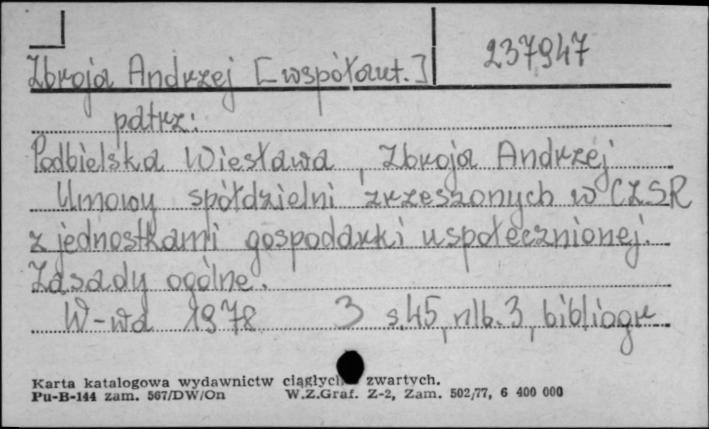 237947
Zbroja Andrzej [współaut.]
patrz:
Podbielska Wiesława, Zbroja Andrzej
Umowy spółdzielni zrzeszonych w CZSR
z jednostkami gospodarki uspołecznionej.
Zasady ogólne.
W-wa 1978 3 s.45, nlb. 3, bibliogr
Karta katalogowa wydawnictw ciągłych zwartych.
Pu-B-144 zam. 567/DW/On W.Z.Graf. Z-2, Zam. 502/77, 6 400 000